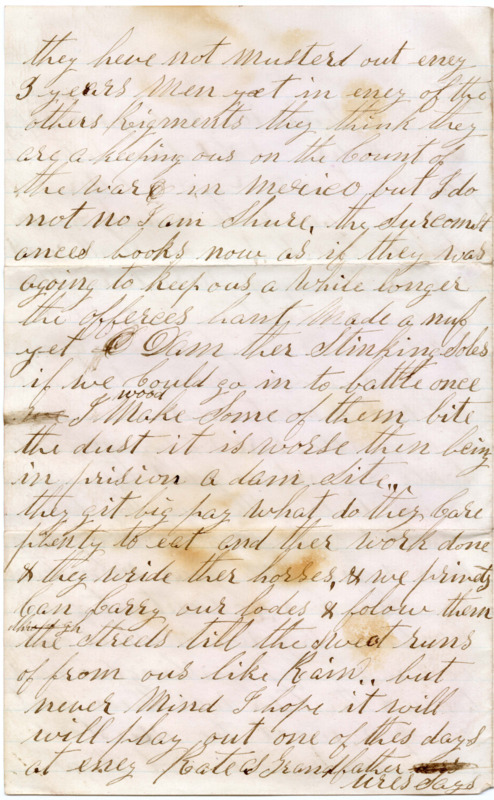 they heve not musterd out eney
3 years men yet in eney of the
others Rigments they think they
are a keeping ous on the Count of
the ware in Mexico but I do
not no I am Shure, the Surcomst
ances books now as if they was
agoing to keep ous a while longer
the offercees hant Made a nuf
yet O Dam ther Stinking Soles
if we Could go in to battle once
I wood Make Some of them bite
the dust it is worse then being
in prision a dam Site,,
they git big pay what do they Care
plenty to eat and ther work done
& they wride ther horses, & we privets
Can Carry our lodes & folow them
through the Streds till the Sweat runs
of from ous like Rain,, but
never Mind I hope it will
will play out one of thes days
at eney Rate as Grandfather
ures Says